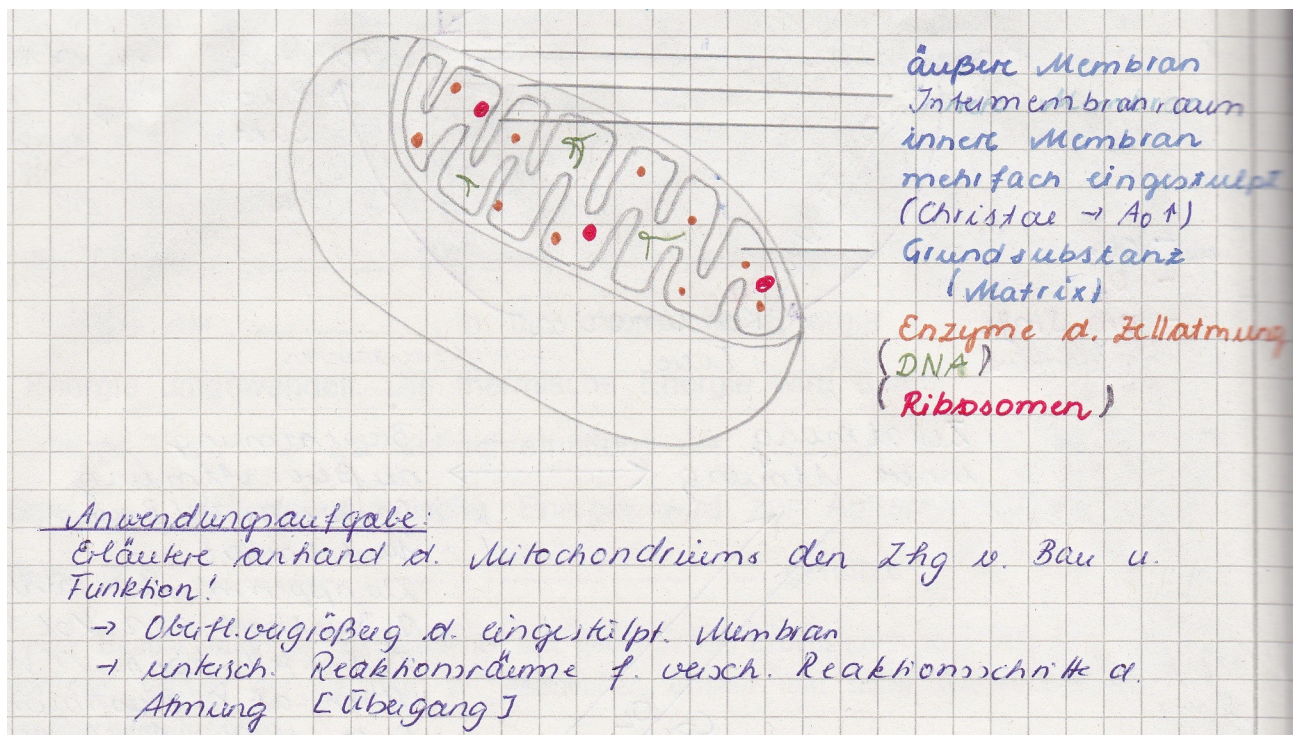 äußere Membran
Intermembranraum
innere Membran
mehrfach eingestülpt
(Christae → A₀↑)
Grundsubstanz
(Matrix)
Enzyme d. Zellatmung
(DNA)
(Ribosomen)
Anwendungsaufgabe:
Erläutere anhand d. Mitochondriums den Zhg v. Bau u.
Funktion!
→ Oberfl.vergrößerg d. eingestülpt. Membran
→ Reaktionsräume f. versch. Reaktionsschritte d.
Atmung [Übergang]